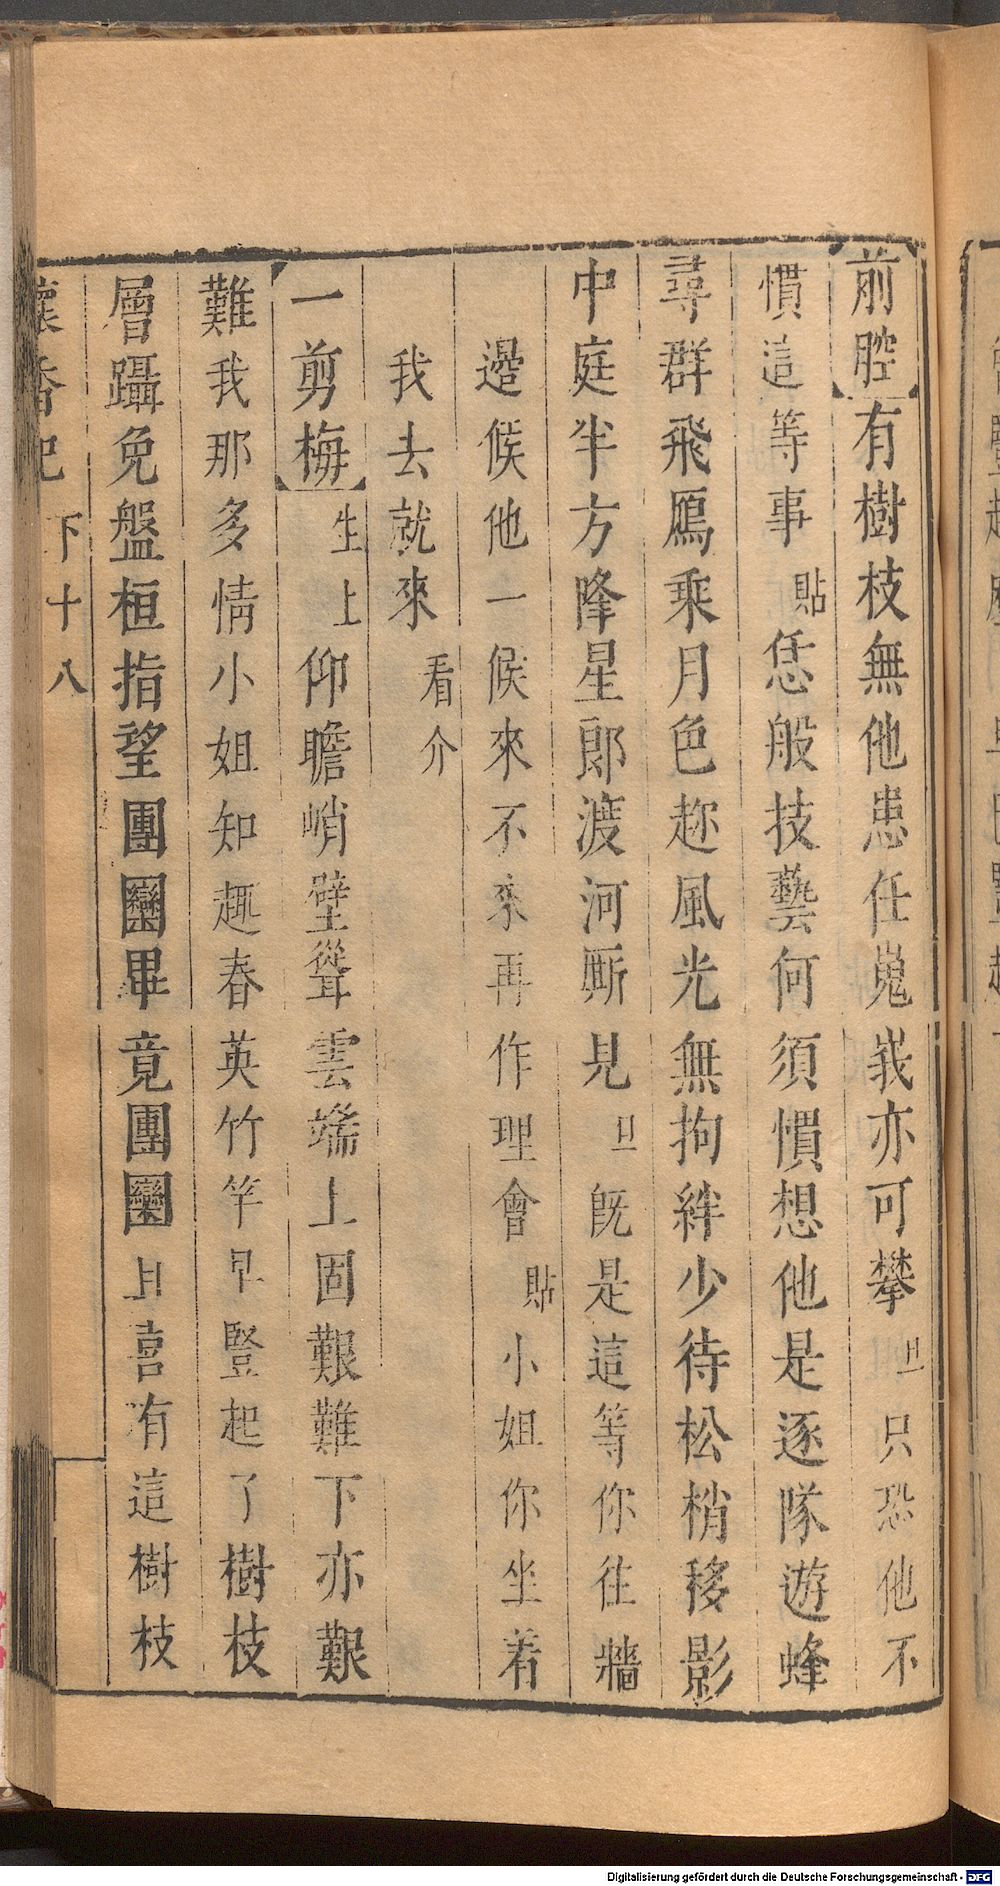 前腔有樹枝無他患任嵬峩亦可攀旦只恐他不
慣這等事貼恁般技藝何須慣想他是逐隊遊蜂
尋群飛鴈乘月色趂風光無拘絆少待松梢移影
中庭半方隆星郎渡河厮見旦旣是這等你往牆
邊候他一候來不來再作理會貼小姐你坐着
我去就來看介
一剪梅生上仰瞻峭壁聳雲端上固艱難下亦艱
難我那多情小姐知趣春英竹竿早豎起了樹枝
層躡免盤桓指望團圞畢竟團圞且喜有這樹枝
懷香記 下 十八
Digitalisierung gefördert durch die Deutsche Forschungsgemeinschaft - DFG